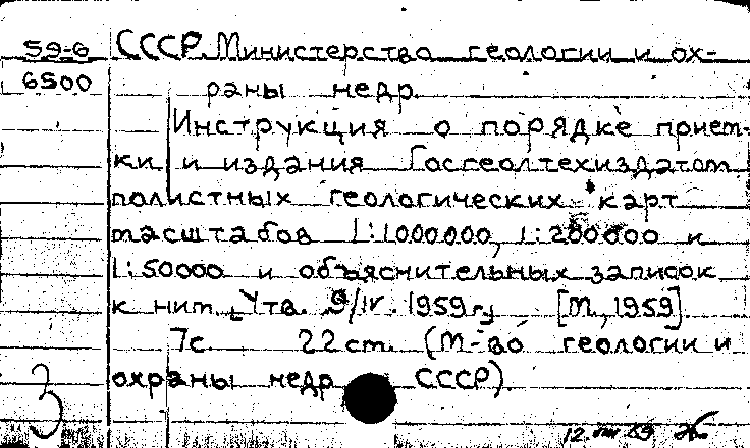 59-6
6500
СССР. Министерство геологии и ох-
раны недр.
Инструкция о порядке прием-
ки и издания Госгеолтехиздатом
полистных геологических карт
масштабов 1:1000000, 1:200000 и
1:50000 и объяснительных записок
к ним. Утв. 9/IV. 1959 г. [М., 1959].
7с. 22 см. (М-во геологии и
охраны недр СССР).
3
12. 59